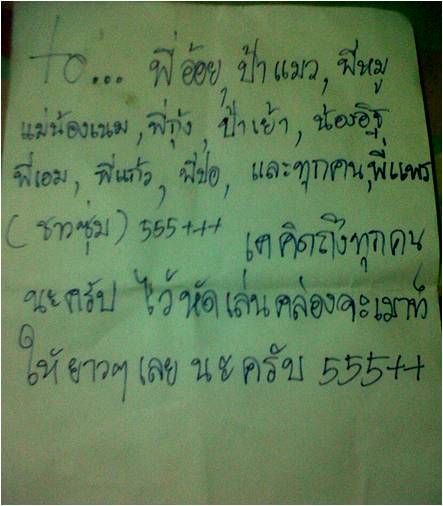 to... พี่อ้อย, ป้าแมว, พี่หมู
แม่น้องเนม, พี่กุ้ง, ป้าเย้า, น้องอิฐ
พี่เอม, พี่แก้ว, พี่ปอ, และทุกคน, พี่แพร
(ชาวซุ่ม) 555+++ เค คิดถึงทุกคน
นะครับ ไว้หัดเล่นคล่องจะเมาท์
ให้ยาวๆ เลย นะครับ 555++